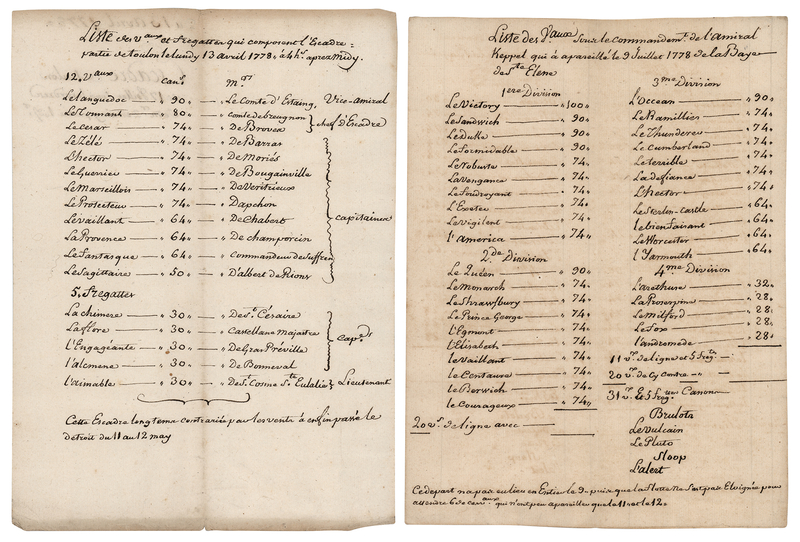 Liste des V.aux et fregattes qui composent l'Escadre
partie de toulon le lundy 13 avril 1778 à 4h.s aprez Midy.
12. V.aux can.s M.rs
Le Languedoc — " 90 " — Le Comte d'Estaing, Vice-amiral
Le Tonnant — " 80 " — comte de breugnon } chef d'Escadre
Le cesar — " 74 " — De Broves
Le Zélé — " 74 " — De Barras
L'hector — " 74 " — De Moriés
Le Guerrier — " 74 " — De Bougainville
Le Marseillois — " 74 " — De Veritrieux
Le Protecteur — " 74 " — Dapchon
Le vaillant — " 64 " — De Chabert } capitaines
La Provence — " 64 " — De champorcin
Le fantasque — " 64 " — commandeur de Suffren
Le Sagittaire — " 50 " — D'albert de Rions
5. fregattes
La chimere — " 30 " — De St. Césaire
La flore — " 30 " — Castellane majastre
L'Engageante — " 30 " — De Gras Préville } cap.es
L'alcmene — " 30 " — De Bonneval
L'aimable — " 30 " — De St. Cosme Ste. Eulalie } Lieutenant
Cette Escadre longtems contrariée par les vents à enfin passé le
detroit du 11 au 12 may
Liste des V.aux sous le commandem.t de l'amiral
Keppel qui à apareillé le 9 Juillet 1778 de la Baye
de Ste Elene
1ere Division
Le Victory — " 100 "
Le Sandwich — " 90 "
Le Duke — " 90 "
Le formidable — " 90 "
Le Robuste — " 74 "
La Vengance — " 74 "
Le foudroyant — " 74 "
L'Exeter — " 74 "
Le Vigilent — " 74 "
l'america — " 74 "
2de Division
Le Quéen — " 90 "
Le Monarch — " 74 "
Le Shrawsbury — " 74 "
Le Prince George — " 74 "
l'Egmont — " 74 "
l'Elisabeth — " 74 "
Le vaillant — " 74 "
Le Centaure — " 74 "
Le Berwich — " 74 "
Le Courageux — " 74 "
20 v.x de ligne avec
3me Division
L'Occean — " 90 "
Le Ramillier — " 74 "
Le Thunderer — " 74 "
Le cumberland — " 74 "
Le terrible — " 74 "
La defiance — " 74 "
L'hector — " 74 "
Le Sterlen-Castle — " 64 "
le bien faisant — " 64 "
Le Worcester — " 64 "
l'Yarmouth — " 64 "
4me Division
L'arethuse — " 32 "
La Proserpine — " 28 "
Le Milford — " 28 "
Le Fox — " 28 "
l'andromede — " 28 "
11 v.x de ligne et 5 freg.tes
20 v.x de Cy Contre
31 v.x et 5 freg.
Brulots
Le vulcain
Le Pluto
Sloop
L'alert
Ce depart n'a pas eu lieu en Entier le 9. puis que la flotte ne s'ert pas Eloignée pour
attendre 6 de ces v.aux qui n'ont peu apareiller que le 11 et le 12.